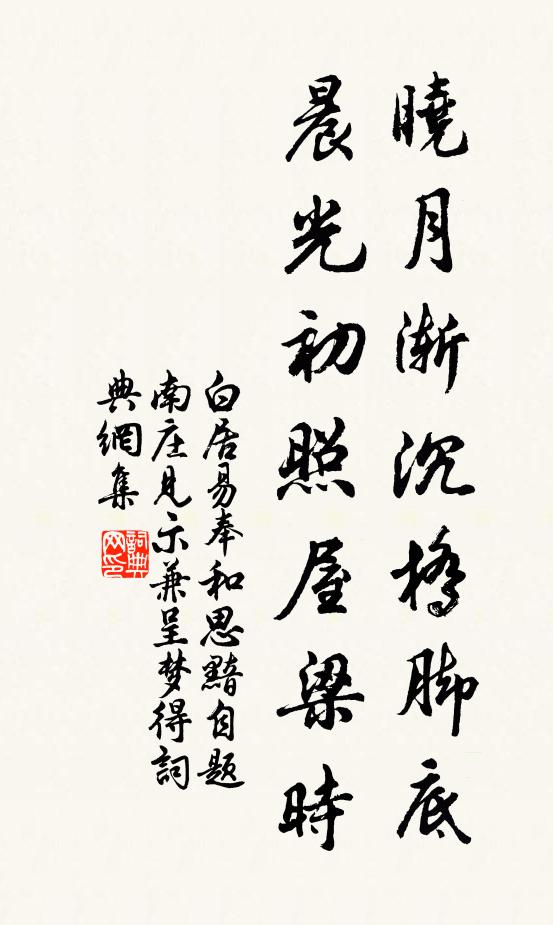 曉月漸沉橋脚底
晨光初照屋梁時
白居易奉和思黯自題
南庄見示兼呈梦得詞
典網集
詞典网印